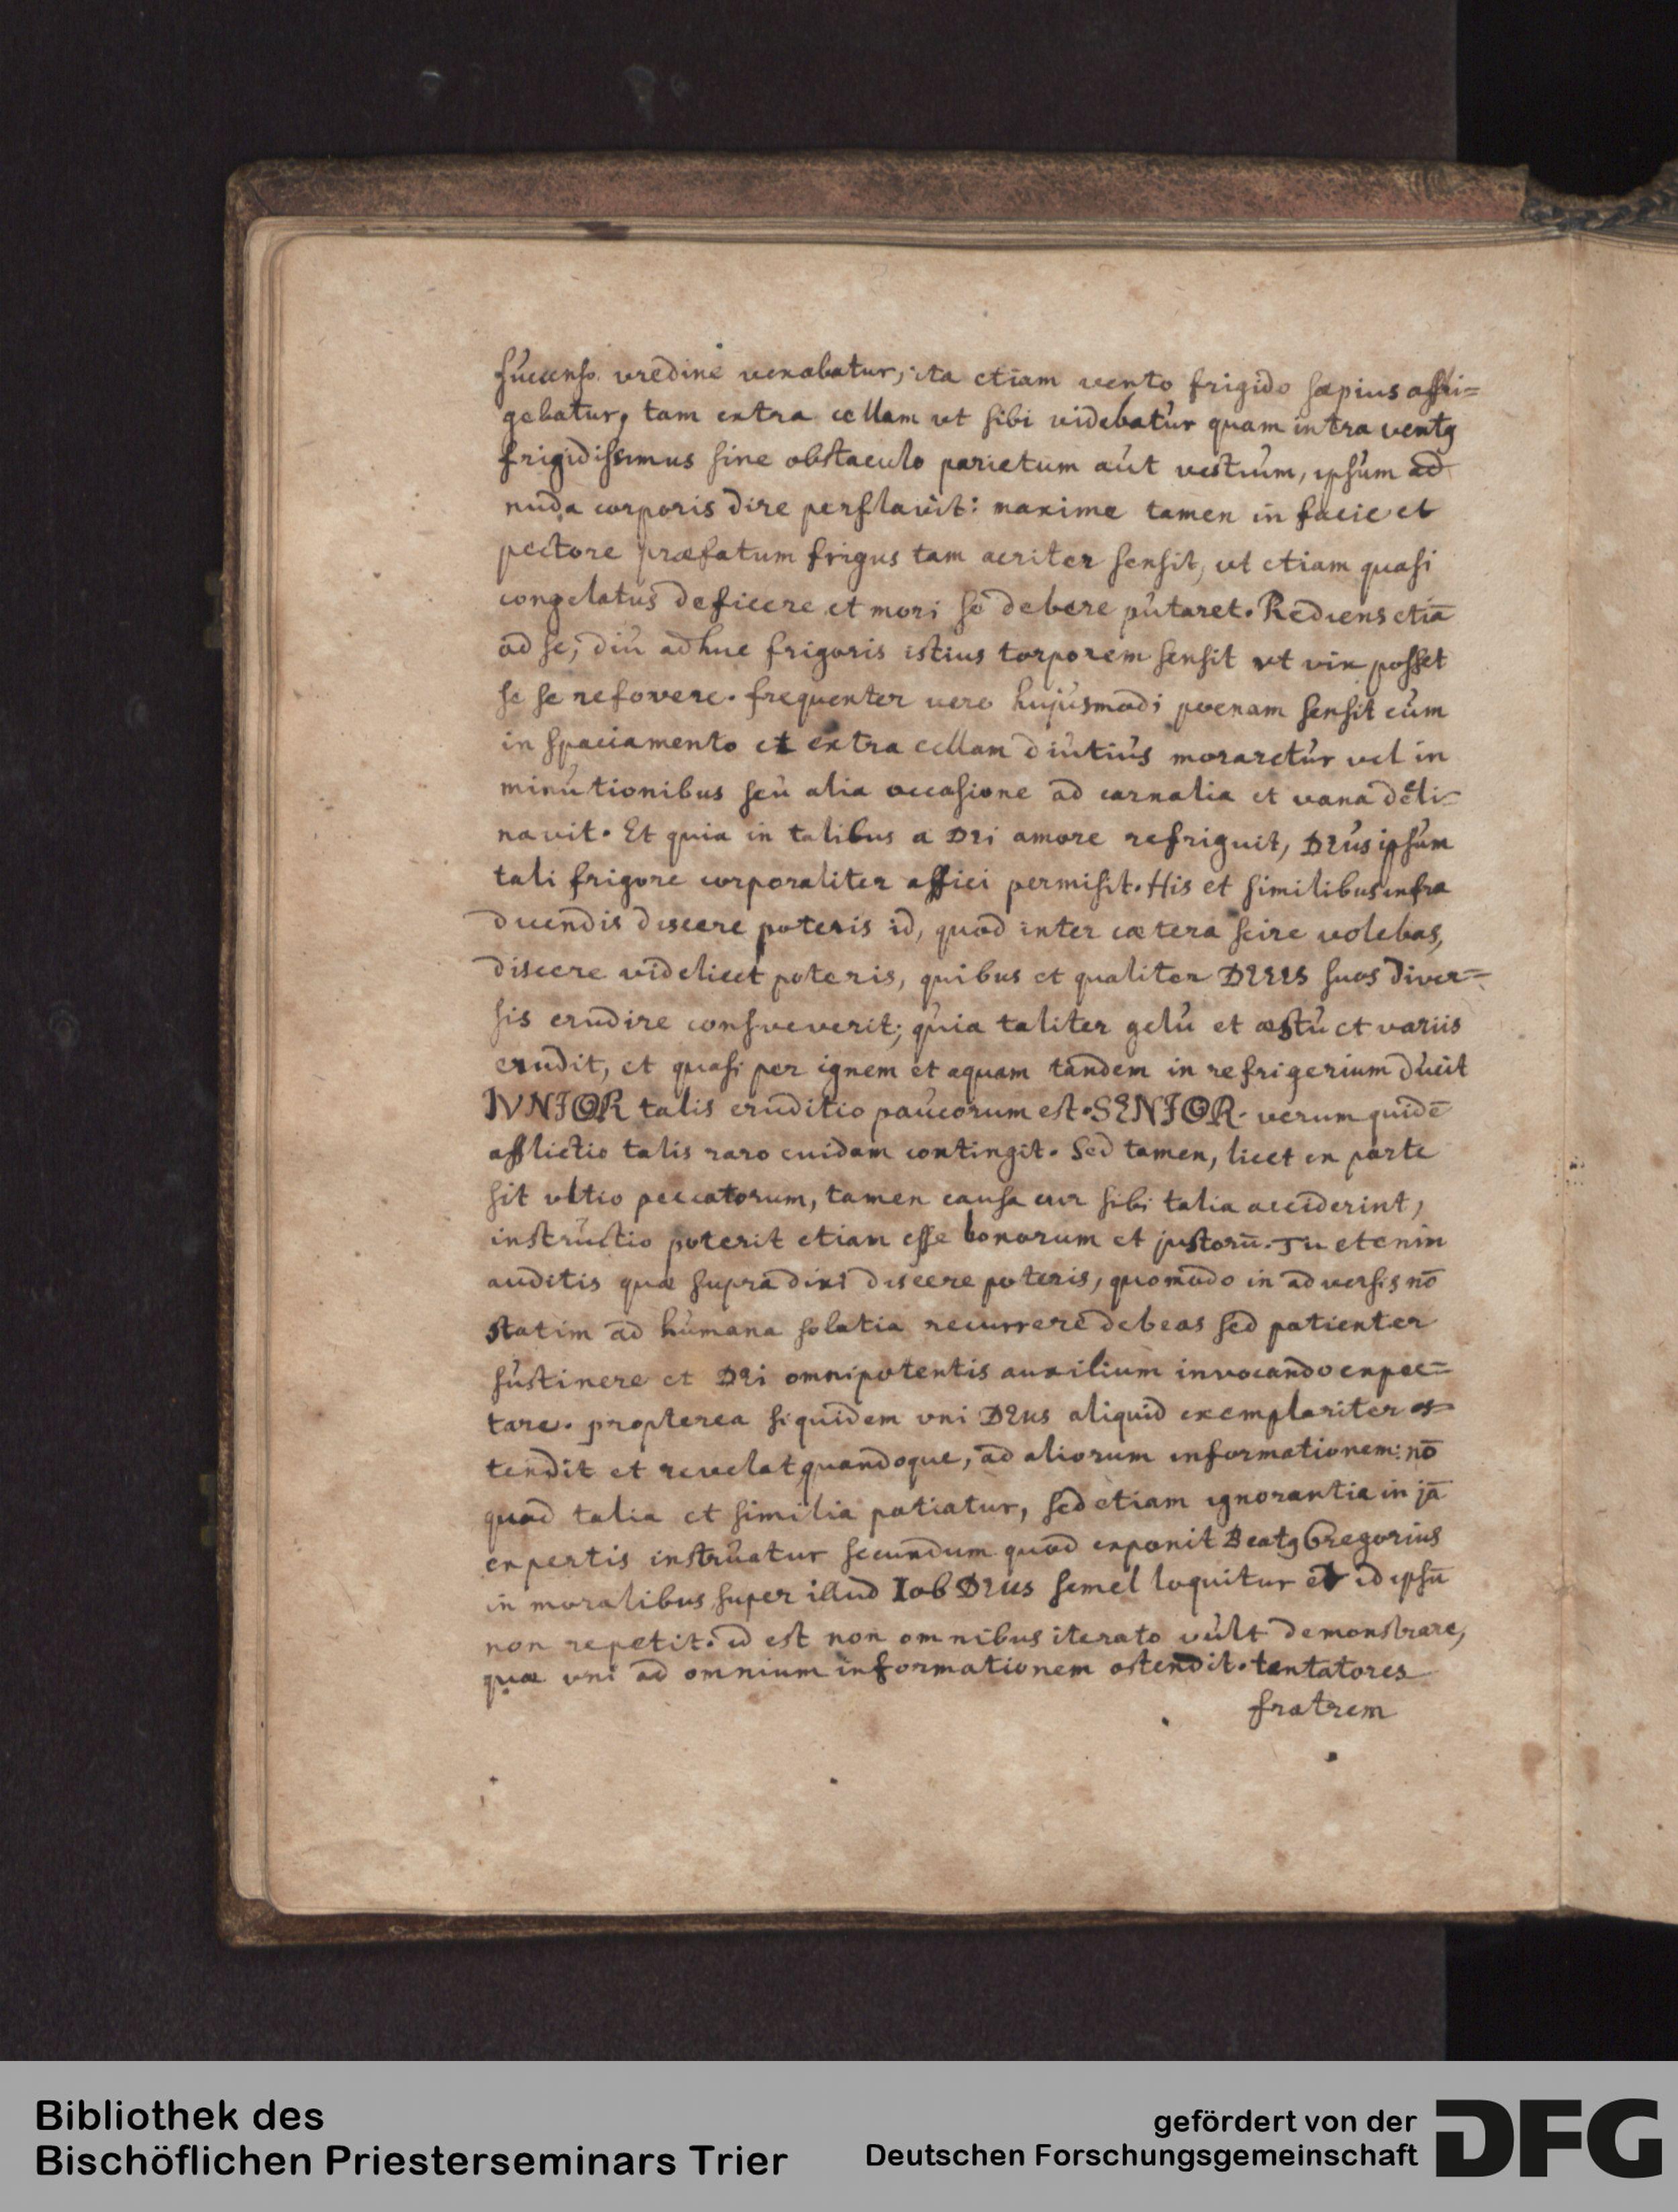 succenso vredine vexabatur, ita etiam vento frigido sæpius affri=
gebatur, tam extra cellam vt sibi videbatur quam intra ventꝯ
frigidissimus sine obstaculo parietum aut vestium, ipsum ad
nuda corporis dire perflavit: maxime tamen in facie et
pectore præfatum frigus tam acriter sensit, vt etiam quasi
congelatus deficere et mori se debere putaret. Rediens etiā
ad se, diu adhuc frigoris istius torporem sensit vt vix posset
se se refovere. frequenter vero hujusmodi poenam sensit cum
in spaciamento et extra cellam diutius moraretur vel in
minutionibus seu alia occasione ad carnalia et vana decli=
navit. Et quia in talibus a DEi amore refriguit, DEus ipsum
tali frigore corporaliter affici permisit. His et similibus infra
ducendis discere poteris id, quod inter cætera scire volebas,
discere videlicet poteris, quibus et qualiter DEUS suos diver=
sis erudire consveverit; quia taliter gelu et æstu et variis
erudit, et quasi per ignem et aquam tandem in refrigerium ducit
IVNIOR talis eruditio paucorum est. SENIOR. verum quidē
afflictio talis raro cuidam contingit. Sed tamen, licet ex parte
sit vltio peccatorum, tamen causa cur sibi talia acciderint,
instructio poterit etiam esse bonorum et justorū. Tu etenim
auditis quæ supra dixi discere poteris, quomodo in adversis nō
statim ad humana solatia recurrere debeas sed patienter
sustinere et DEi omnipotentis auxilium invocando expec=
tare. propterea siquidem vni DEus aliquid exemplariter os=
tendit et revelat quandoque, ad aliorum informationem: nō
quod talia et similia patiatur, sed etiam ignorantia in jā
expertis instruatur secundum quod exponit Beatꝯ Gregorius
in moralibus super illud Iob DEus semel loquitur et id ipsū
non repetit. id est non omnibus iterato vult demonstrare,
quæ vni ad omnium informationem ostendit. tentatores
fratrem
Bibliothek des
Bischöflichen Priesterseminars Trier
gefördert von der
Deutschen Forschungsgemeinschaft
DFG